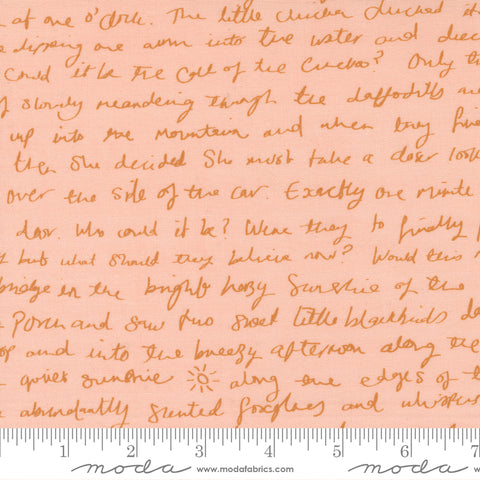 at one o'clock. The little chicken clucked
dipping one arm into the water and
could it be the call of the Cuckoo? Only
slowly meandering through the daffodills
up into the mountain and when they
then she decided she must take a closer look
over the side of the car. Exactly one minute
door. Who could it be? Were they to finally
but what should they believe now? Would this
bridge in the bright hazy Sunshine of the
Porch and saw two sweet little blackbirds
and into the breezy afternoon along the
quiet sunshine along the edges of
abundantly scented foxgloves and
1 2 3 4 5 6 7
moda www.modafabrics.com moda